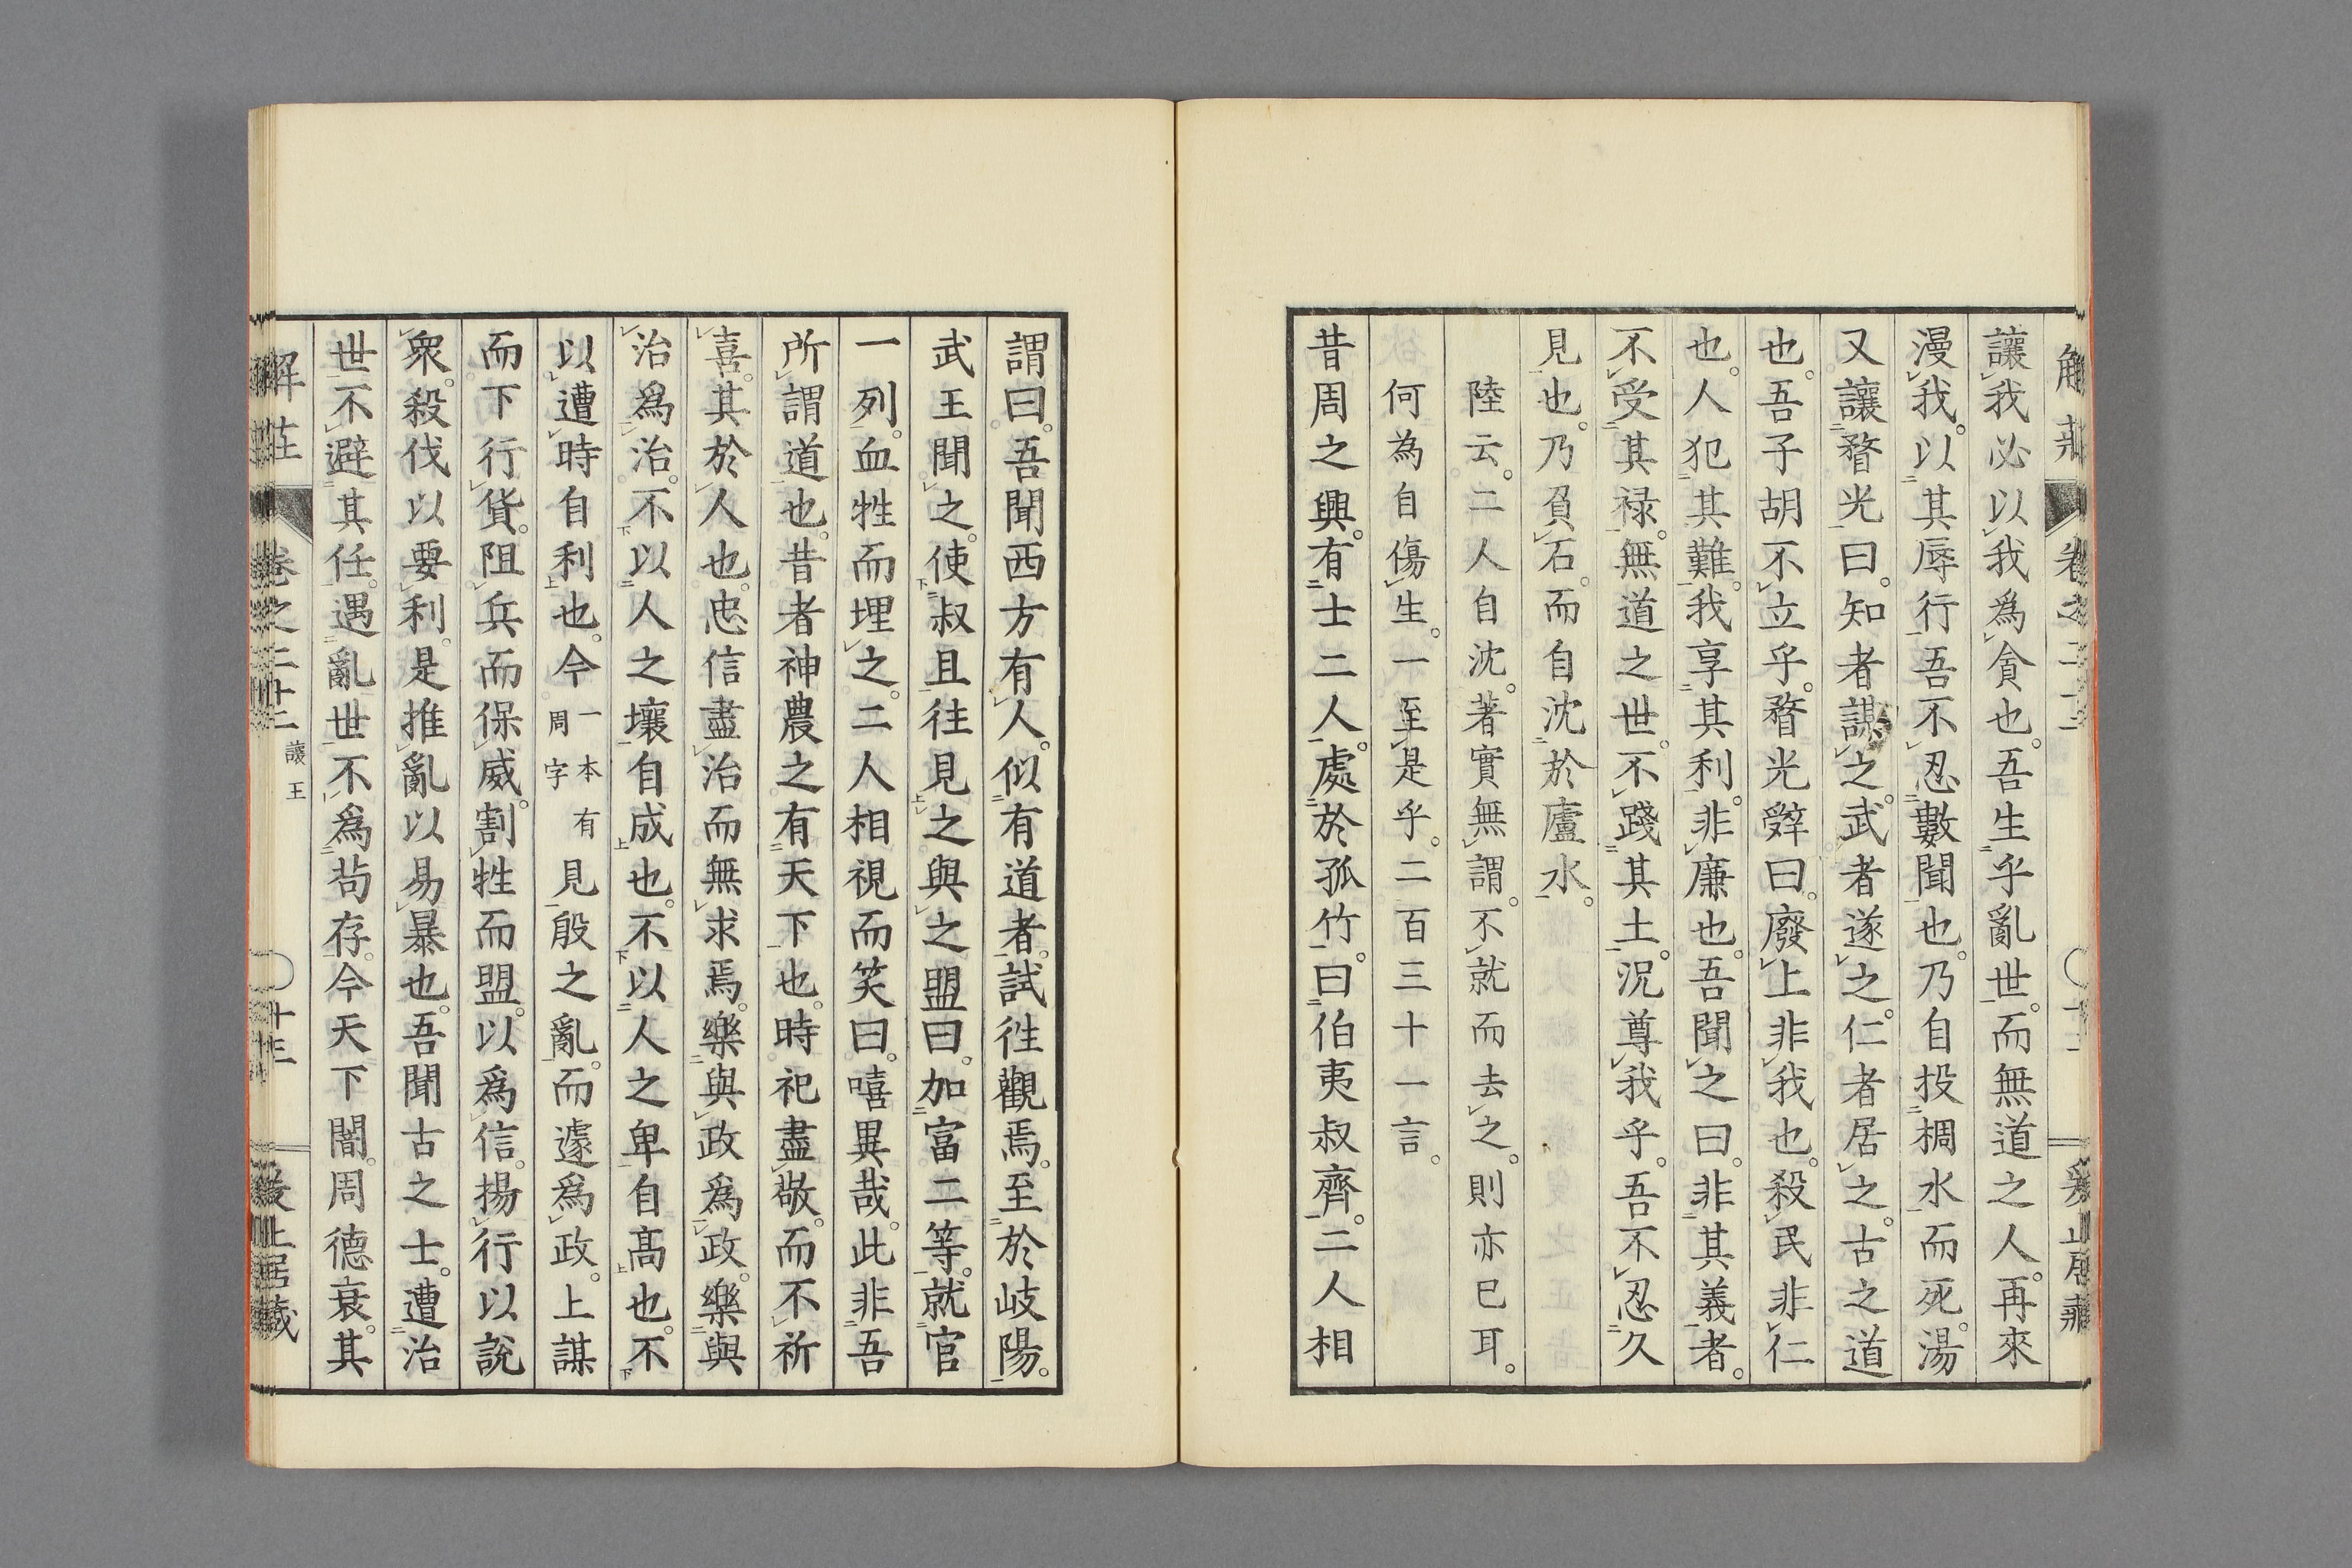 讓我必以我爲貪也。吾生乎亂世。而無道之人。再來
漫我。以其辱行吾不忍數聞也。乃自投椆水而死。湯
又讓瞀光曰。知者謀之。武者遂之。仁者居之。古之道
也。吾子胡不立乎。瞀光辭曰。廢上非我也。殺民非仁
也。人犯其難。我享其利。非廉也。吾聞之曰。非其義者。
不受其祿。無道之世。不踐其土。況尊我乎。吾不忍久
見也。乃負石。而自沈於廬水。
陸云。二人自沈。著實無謂。不就而去之。則亦已耳。
何為自傷生。一至是乎。二百三十一言。
昔周之興。有士二人。處於孤竹。曰伯夷叔齊。二人相
謂曰。吾聞西方有人。似有道者。試徃觀焉。至於岐陽。
武王聞之。使叔旦往見之與之盟曰。加富二等。就官
一列。血牲而埋之。二人相視而笑曰。嘻異哉。此非吾
所謂道也。昔者神農之有天下也。時祀盡敬。而不祈
喜。其於人也。忠信盡治而無求焉。樂與政爲政。樂與
治爲治。不以人之壞自成也。不以人之卑自高也。不
以遭時自利也。今一本有周字見殷之亂。而遽爲政。上謀
而下行貨。阻兵而保威。割牲而盟。以爲信。揚行以說
衆。殺伐以要利。是推亂以易暴也。吾聞古之士。遭治
世不避其任。遇亂世不爲苟存。今天下闇。周德衰。其
解莊 卷之二十二 讓王 十三